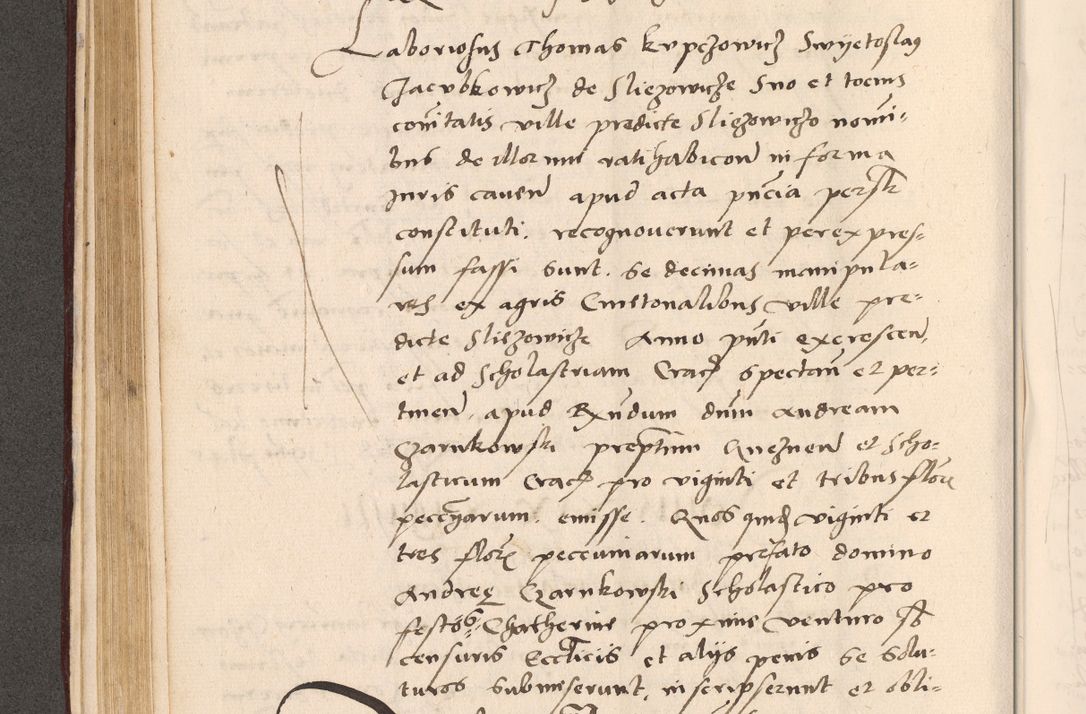 Laboriosus Thomas Kupczowicz Swyetoslaus
Jacubkowicz de Sliezowicze Suo et tocius
comitatis ville predicte Sliezowicze nomi-
bus de illorum ratihabicoe in forma
Juris caven apud acta pncia persolr
constituti, recognoverunt et perexpres-
sum fassi sunt, se decimas manipula-
res ex agris Cmetonalibus ville pre-
dicte Sliezowicze Anno pnti excrescen,
et ad Scholastriam Crac spectan et per-
tinen, apud Rndum dnm Andream
Czarnkowski prepositum Gneznen et Scho-
lasticum Crac pro viginti et tribus flore
pecuniarum, emisse. Quos quidem viginti et
tres flore peccuniarum prefato domino
Andree Czarnkowski Scholastico pro
festo S Chatherine proxime venturo sub
censuris Ecclicis et alijs penis se solu-
turos submiserunt, inscripserunt et obli-